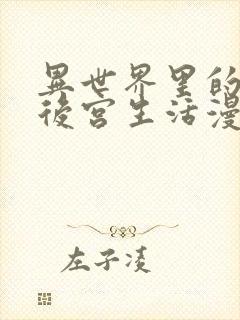 異世界里的
後宮生活漫
左子凌